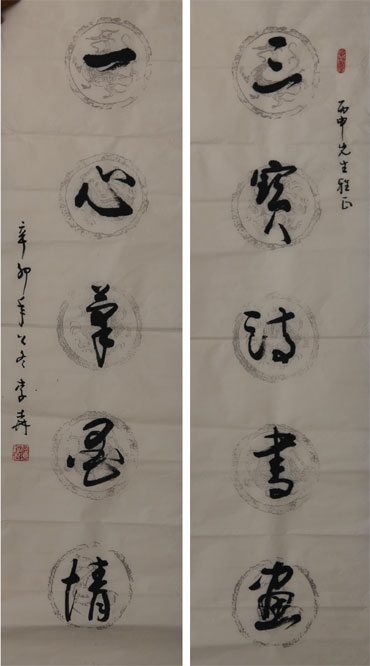 丙申先生雅正
三寶詩書畫
一心筆墨情
辛卯年之冬李壵